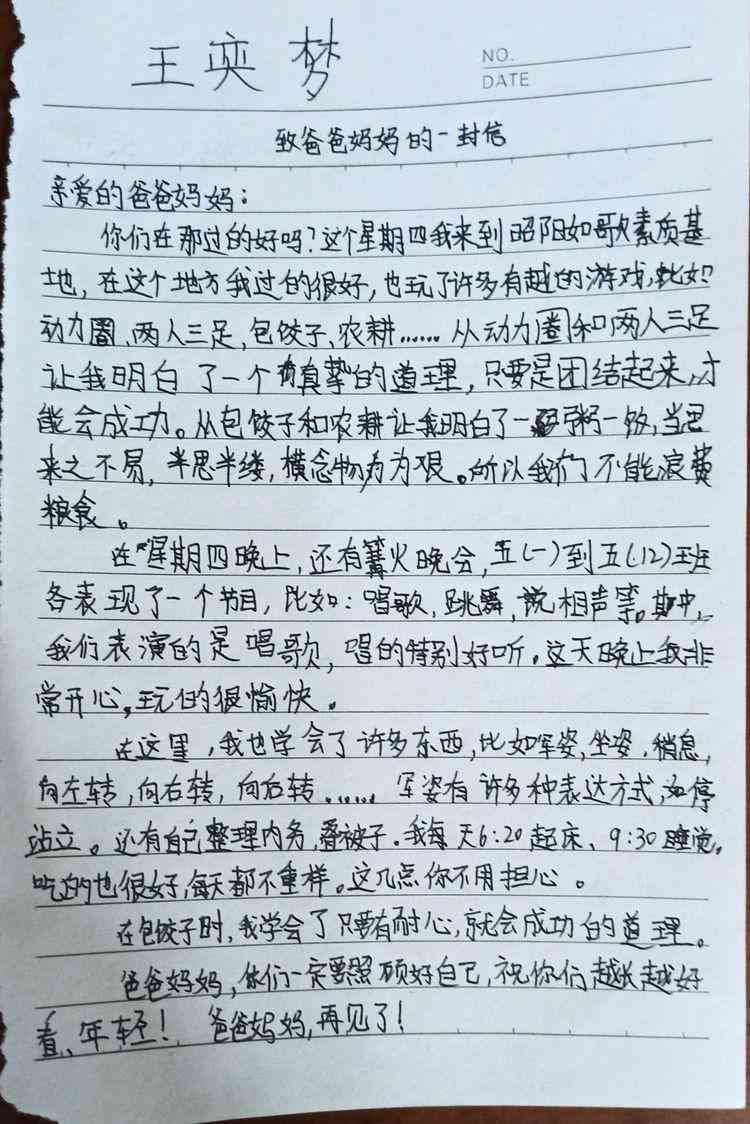 王奕梦
NO.
DATE
致爸爸妈妈的一封信
亲爱的爸爸妈妈:
你们在那过的好吗?这个星期四我来到昭阳如歌素质基
地,在这个地方我过的很好,也玩了许多有趣的游戏,比如
动力圈,两人三足,包饺子、农耕……从动力圈和两人三足
让我明白了一个真挚的道理,只要是团结起来,才
能会成功。从包饺子和农耕让我明白了一粥一饭,当思
来之不易,半思半缕,横念物为为艰。所以我们不能浪费
粮食。
在星期四晚上,还有篝火晚会,五(一)到五(12)班
各表现了一个节目,比如:唱歌,跳舞,说相声等。其中,
我们表演的是唱歌,唱的特别好听。这天晚上我非
常开心,玩的很愉快。
在这里,我也学会了许多东西,比如军姿,坐姿,稍息,
向左转,向右转,向后转…… 军姿有许多种表达方式,如停
站立。还有自己整理内务,叠被子。我每天6:20起床、9:30睡觉。
吃的也很好,每天都不重样。这几点你不用担心。
在包饺子时,我学会了只要有耐心,就会成功的道理。
爸爸妈妈,你们一定要照顾好自己,祝你们越长越好
看、年轻! 爸爸妈妈,再见了!